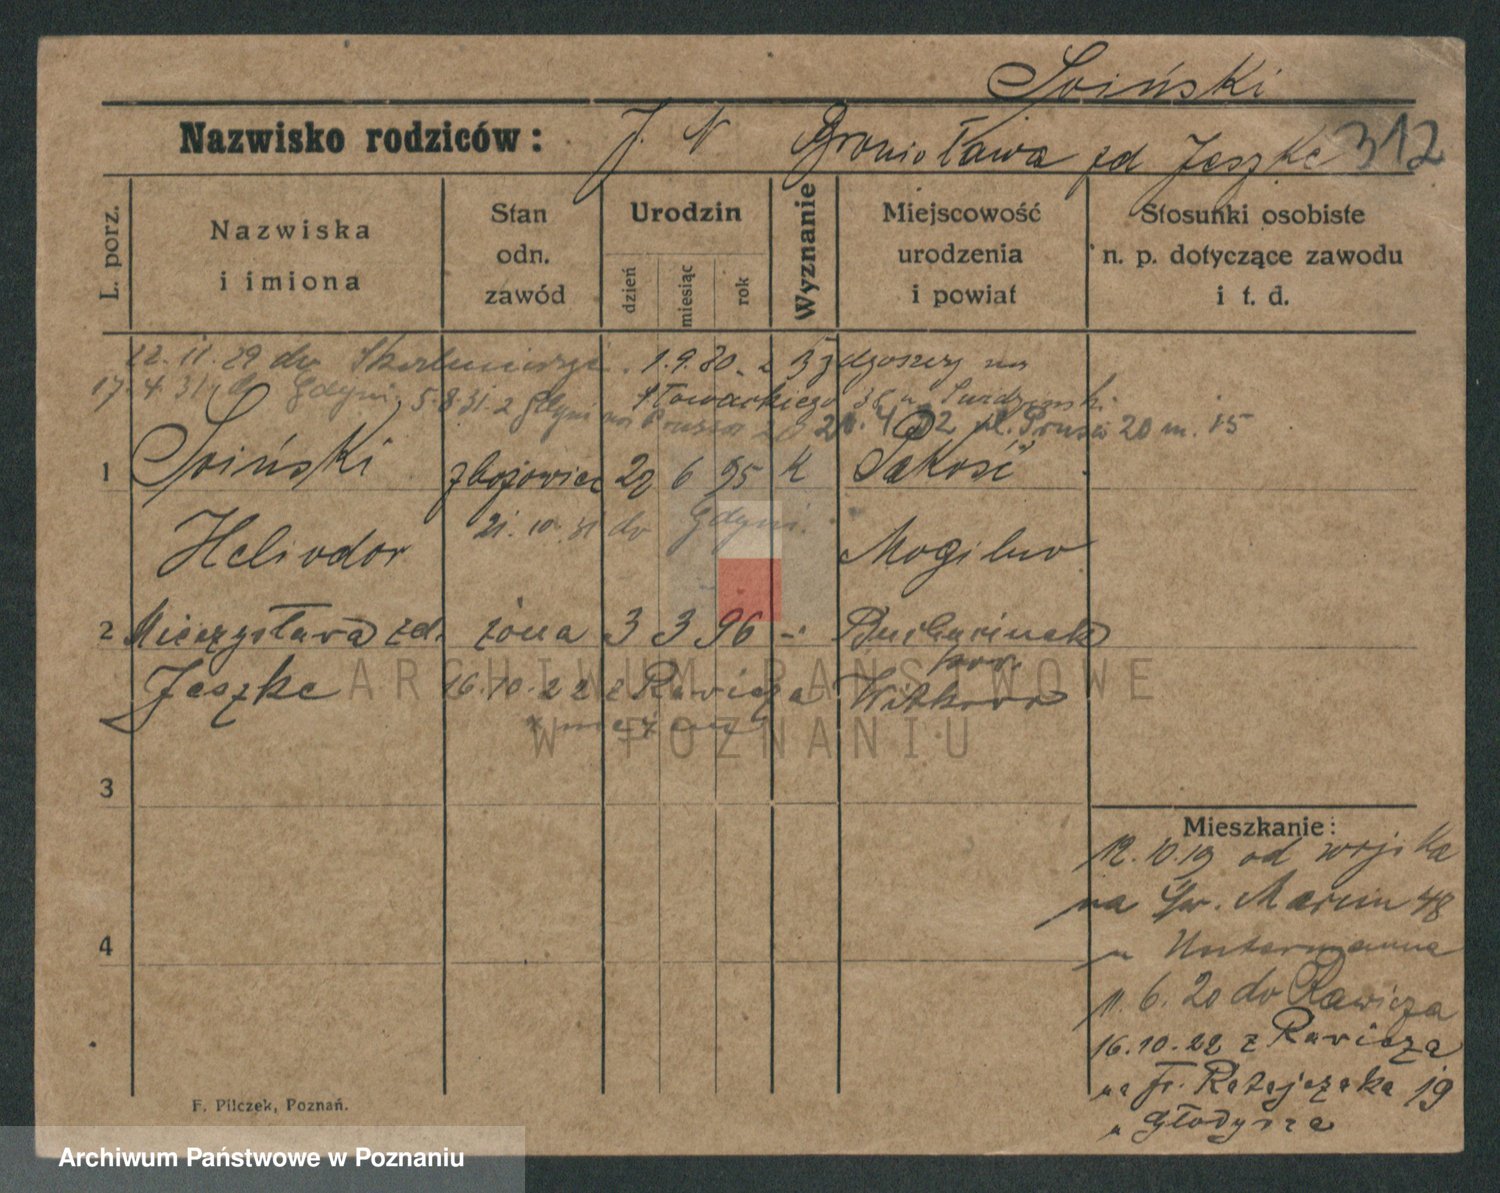 Soiński
Nazwisko rodziców: J. N Bronisława zd Jeszke 312
L. porz.
Nazwiska i imiona
Stan odn. zawód
Urodzin
dzień miesiąc rok
Wyznanie
Miejscowość urodzenia i powiat
Stosunki osobiste n. p. dotyczące zawodu i t. d.
22.11.29 do 1.9.30 z Bydgoszczy na
17.4.31 do Gdyni 5.8.31 z Gdyni Słowackiego 36
20.4.32 pl. 20 m. 15
1 Soiński zbożowiec 29 6 95 K Pakość
21.10.31 do Gdyni.
Heliodor Mogilno
2 Mieczysława zd. żona 3 3 96 -"
Jeszke 16.10.22 z Rawicza pow. Witkowo
3
4
Mieszkanie:
12.10.19 od wojska
na Św. Marcin 48
u Untermanna
11.6.20 do Rawicza
16.10.22 z Rawicza
na Fr. Ratajczaka 19
u
F. Pilczek, Poznań.
ARCHIWUM PAŃSTWOWE
W POZNANIU
Archiwum Państwowe w Poznaniu